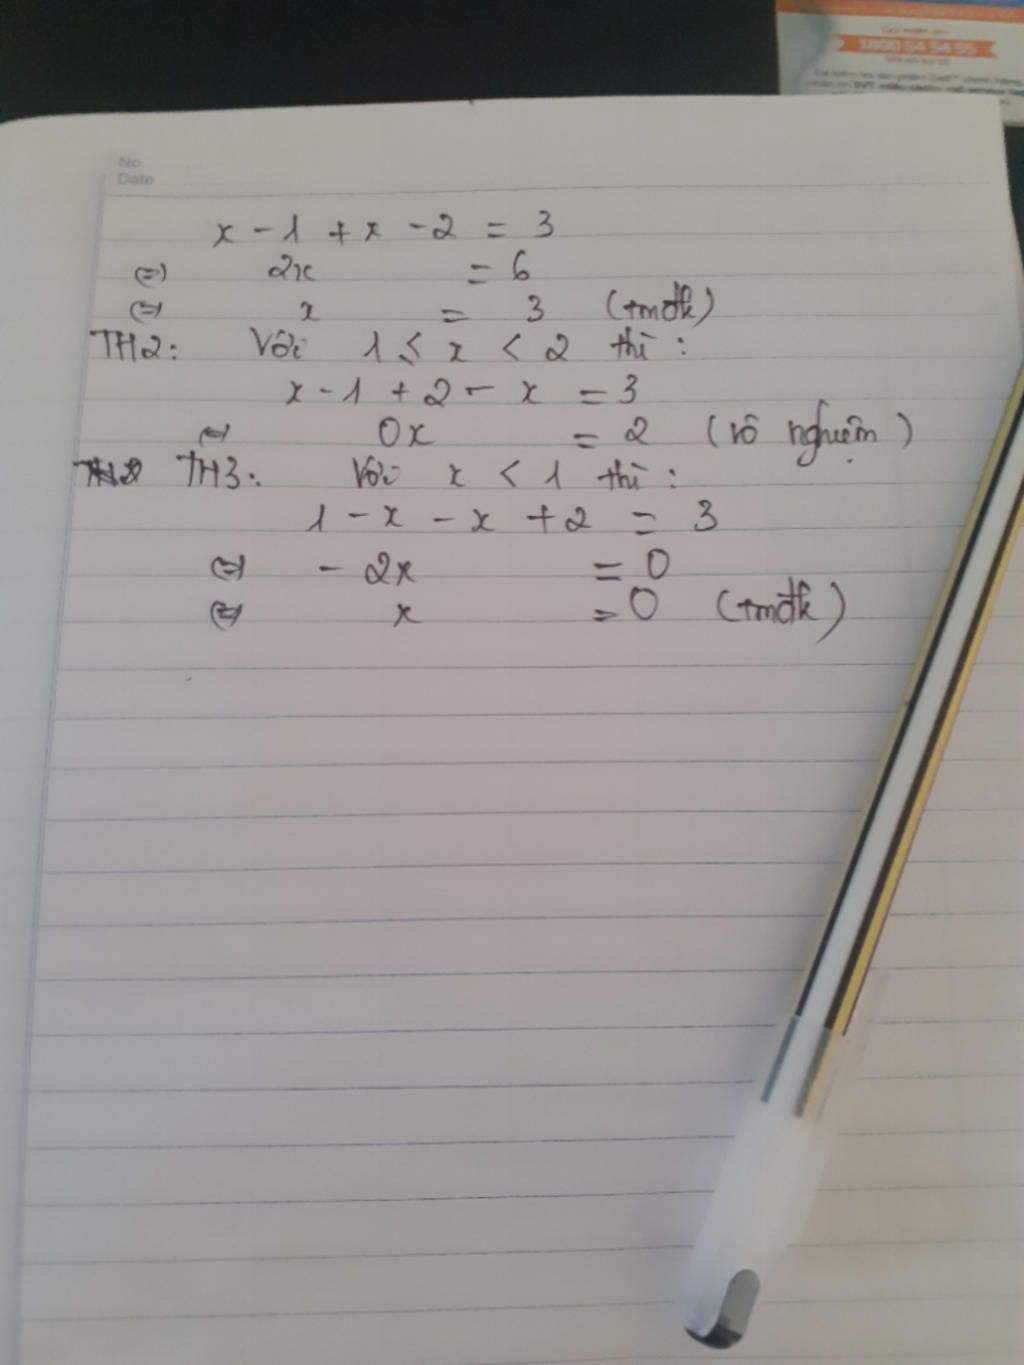 Gọi miễn phí
1800 54 54 55
No.
Date
x - 1 + x - 2 = 3
(=) 2x = 6
(=) x = 3 (tmđk)
TH2: Với 1 ≤ x < 2 thì :
x - 1 + 2 - x = 3
(=) 0x = 2 (vô nghiệm)
TH3: Với x < 1 thì :
1 - x - x + 2 = 3
(=) - 2x = 0
(=) x = 0 (tmđk)